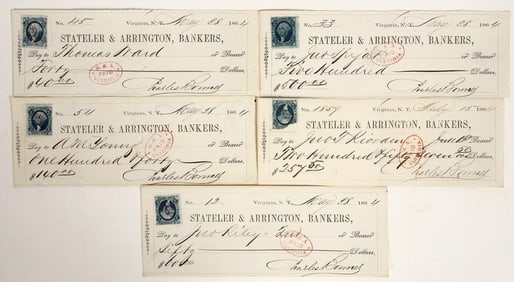 No. 45 Virginia, N.T. May 28 1864
STATELER & ARRINGTON, BANKERS,
Pay to Thomas Ward or Bearer
Forty Dollars,
$40.00 Charles Bonner
S & A
PAID
VIRGINIA
No. 33 Virginia, N.T. May 28 1864
STATELER & ARRINGTON, BANKERS,
Pay to or Bearer
Five Hundred Dollars,
$500.00 Charles Bonner
PAID
VIRGINIA
No. 54 Virginia, N.T. May 28 1864
STATELER & ARRINGTON, BANKERS,
Pay to or Bearer
One Hundred & forty Dollars,
$140.00 Charles Bonner
PAID
No. 1859 Virginia, N.T. July 15 1864
STATELER & ARRINGTON, BANKERS,
Pay to or Bearer
Two Hundred & fifty seven Dollars,
$257.50 Charles Bonner
No. 12 Virginia, N.T. May 28 1864
STATELER & ARRINGTON, BANKERS,
Pay to Jno Riley or Bearer
Sixty Dollars,
$60.00 Charles Bonner
S & A
PAID
VIRGINIA